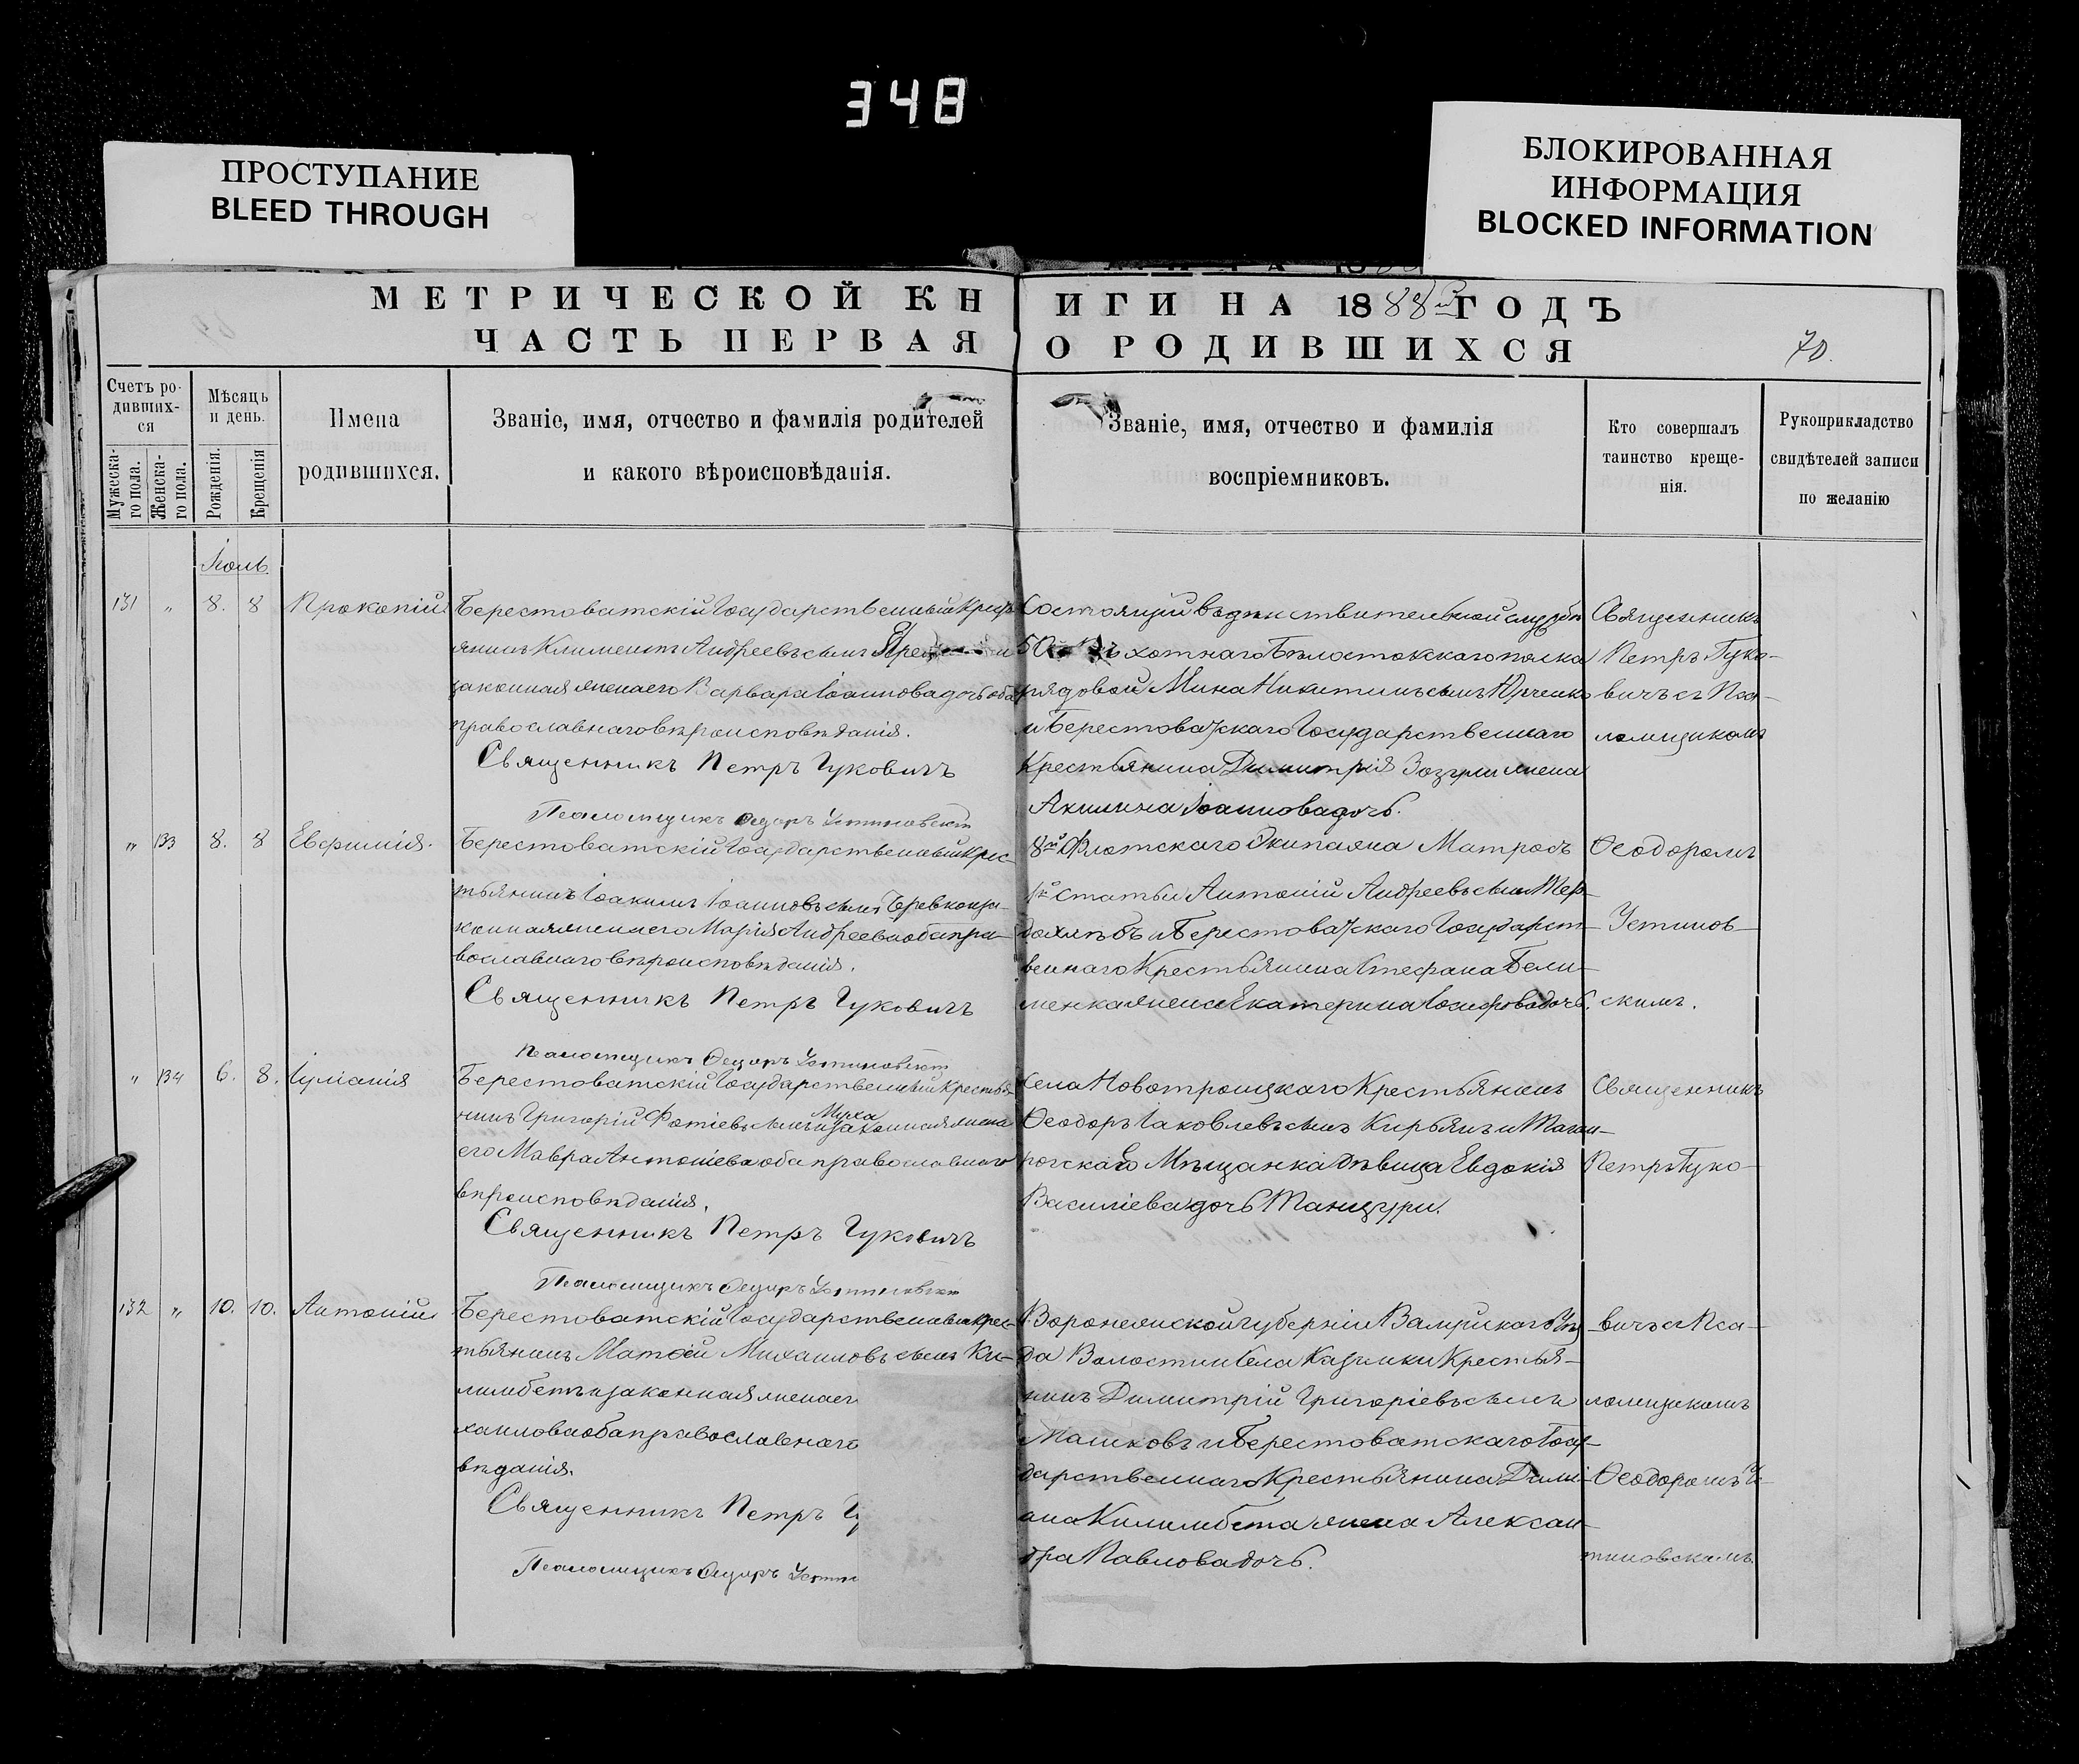 348
ПРОСТУПАНИЕ
BLEED THROUGH
БЛОКИРОВАННАЯ
ИНФОРМАЦИЯ
BLOCKED INFORMATION
МЕТРИЧЕСКОЙ КНИГИ НА 1888й ГОДЪ
ЧАСТЬ ПЕРВАЯ О РОДИВШИХСЯ
70.
Счетъ ро-
дивших-
ся
Мужеска-
го пола.
Женска-
го пола.
Мѣсяць
и день.
Рожденія.
Крещенія
Имена
родившихся.
Званіе, имя, отчество и фамилія родителей
и какого вѣроисповѣданія.
Званіе, имя, отчество и фамилія
воспріемниковъ.
Кто совершалъ
таинство креще-
нія.
Рукоприкладство
свидѣтелей записи
по желанію
Іюль
131 „ 8. 8 Прокопій
Берестоватскій Государственный Крест
янинъ Климентъ Андреевъ сынъ
законная жена его Варвара Іоаннова дочь оба
православнаго вѣроисповѣданія.
Священникъ Петръ Гуковичъ
Псаломщикъ Ѳедоръ Устиновскій
Состоящій въ дѣйствительной службѣ
хотнаго Бѣлостокскаго полка
рядовой Мина Никитинъ сынъ Юрченко
и Берестоватскаго Государственнаго
Крестьянина Димитрія Зозули жена
Акилина Іоаннова дочь.
Священникъ
Петръ Гуко-
вичъ съ Пса-
ломщикомъ
„ 133 8. 8 Евфимія.
Берестоватскій Государственный Крес-
тьянинъ Іоакимъ Іоанновъ сынъ Черевко и за-
конная жена его Марія Андреева оба пра-
вославнаго вѣроисповѣданія.
Священникъ Петръ Гуковичъ
Псаломщикъ Ѳедоръ Устиновскій
8го Флотскаго Экипажа Матросъ
1й статьи Антоній Андреевъ сынъ Тер-
дохлѣбъ и Берестоватскаго Государст-
веннаго Крестьянина Стефана Бели-
менка жена Екатерина Іосифова дочь.
Ѳеодоромъ
Устинов-
скимъ.
„ 134 6. 8. Іуліанія
Берестоватскій Государственный Крестья-
нинъ Григорій Фотіевъ сынъ Муха и законная жена
его Мавра Антоніева оба православнаго
вѣроисповѣданія.
Священникъ Петръ Гуковичъ
Псаломщикъ Ѳедоръ Устиновскій
Села Новотроицкаго Крестьянинъ
Ѳеодоръ Іаковлевъ сынъ Кирьянъ и Таган-
рогскаго Мѣщанка дѣвица Евдокія
Василіева дочь Танцури.
Священникъ
Петръ Гуко-
132 „ 10. 10. Антоній
Берестоватскій Государственный Крес-
тьянинъ Матѳей Михаиловъ сынъ Ки-
лимбетъ и законная жена ег
хаилова оба православнаго
вѣданія.
Священникъ Петръ Гу
Псаломщикъ Ѳедоръ Устин
Воронежской Губерніи Валуйскаго Уѣз-
да Волости и Села Казинки Крестья-
нинъ Димитрій Григоріевъ сынъ
Машковъ и Берестоватскаго Госу-
дарственнаго Крестьянина Дами-
ана Килимбета жена Алексан-
дра Павлова дочь.
вичъ съ Пса-
ломщикомъ
Ѳеодоромъ Ус-
тиновскимъ.